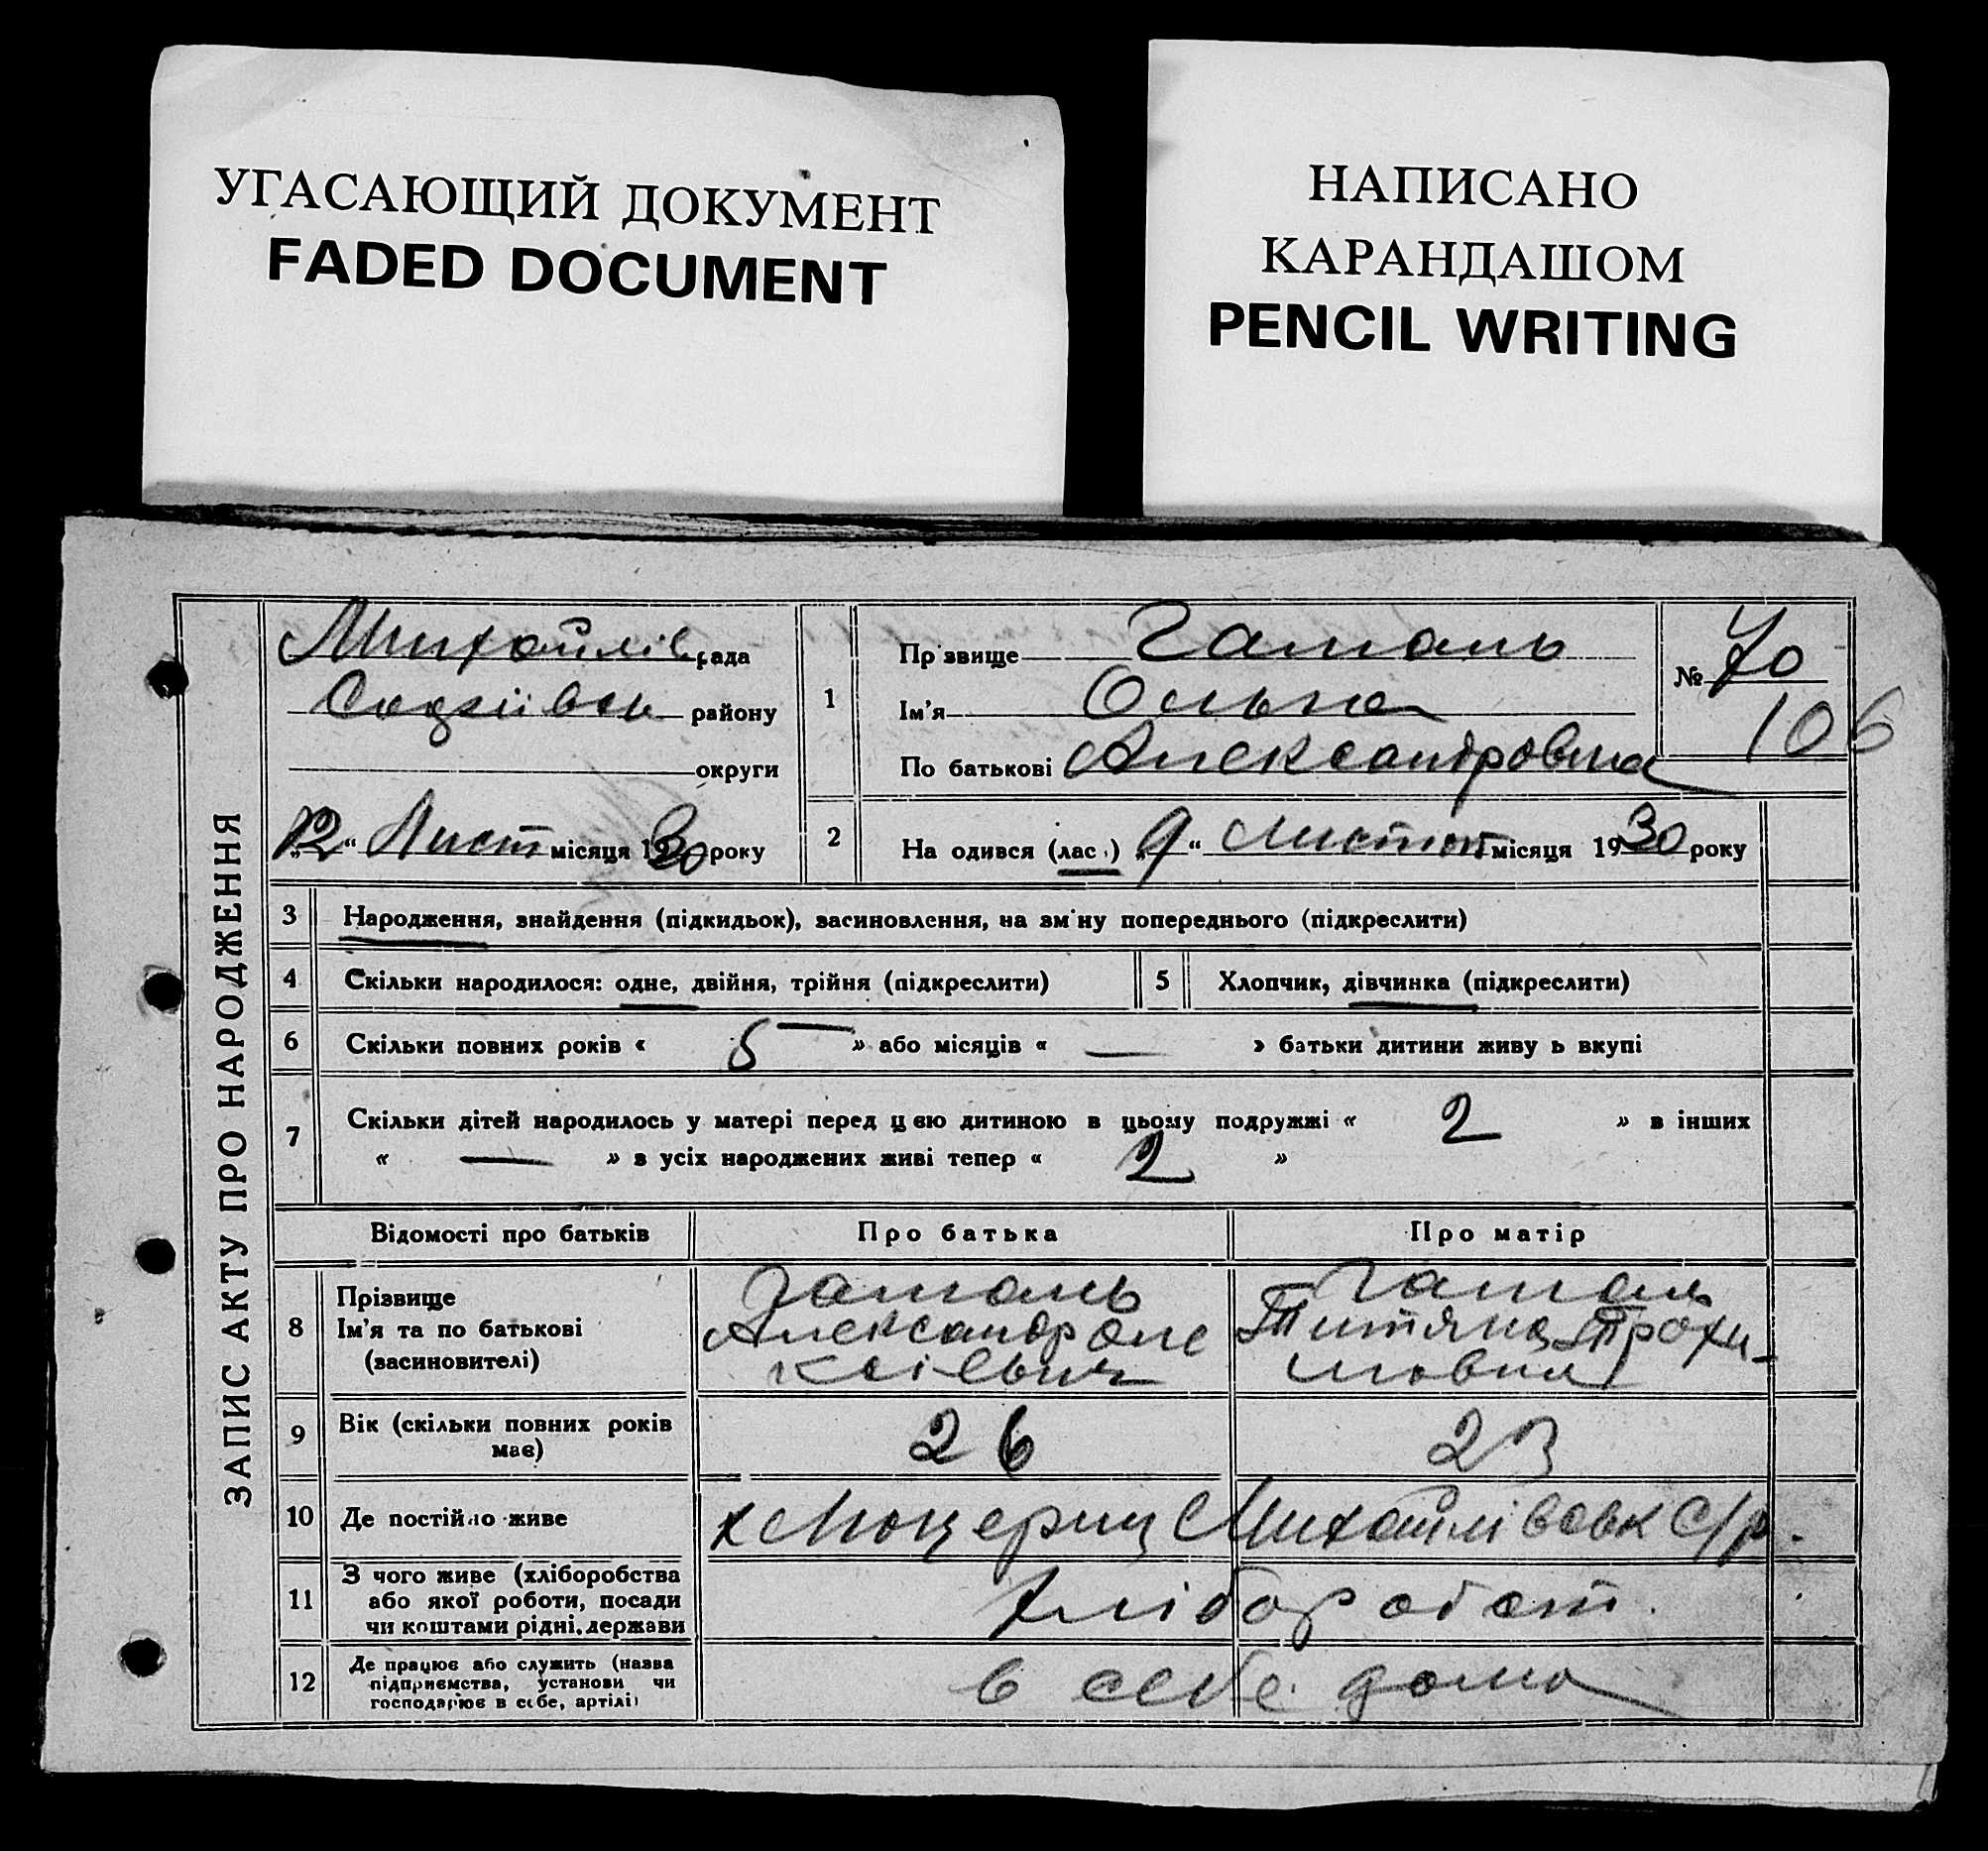 УГАСАЮЩИЙ ДОКУМЕНТ
FADED DOCUMENT
НАПИСАНО
КАРАНДАШОМ
PENCIL WRITING
ЗАПИС АКТУ ПРО НАРОДЖЕННЯ
Михайлів рада
району
округи
12 " Лист місяця 1930 року
1 Прізвище Гаталь
Ім'я Ольга
По батькові Александровна
№ 70
106
2 На одився (лас.) " 9 " Листоп місяця 1930 року
3 Народження, знайдення (підкидьок), засиновлення, на зміну попереднього (підкреслити)
4 Скільки народилося: одне, двійня, трійня (підкреслити) 5 Хлопчик, дівчинка (підкреслити)
6 Скільки повних років « 5 » або місяців « — » батьки дитини живу ь вкупі
7 Скільки дітей народилось у матері перед цією дитиною в цьому подружжі « 2 » в інших
« — » в усіх народжених живі тепер « 2 »
Відомості про батьків Про батька Про матір
8 Прізвище
Ім'я та по батькові
(засиновителі)
Гаталь
Александр Оле
ксієвич
Гаталь
Титяна Трохи-
мовна
9 Вік (скільки повних років
має) 26 23
10 Де постійно живе х Михайлівськ С/р.
11 З чого живе (хліборобства
або якої роботи, посади
чи коштами рідні, держави
Хлібороботі
12 Де працює або служить (назва
підприємства, установи чи
господарює в себе, артілі)
в себе дома